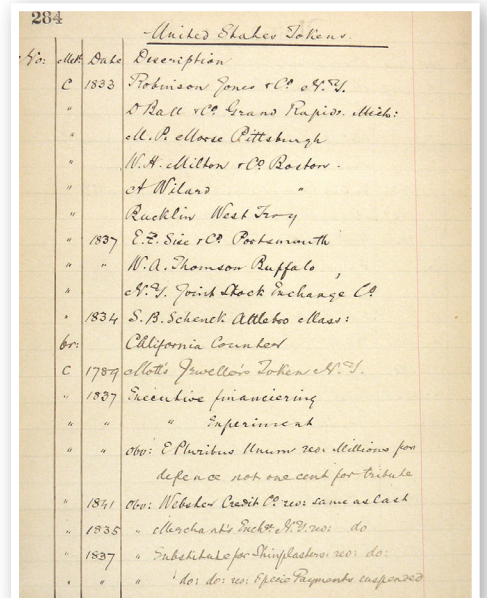 284
United States Tokens.
No: Met: Date Description
C 1833 Robinson Jones & Co. N.Y.
" D Ball & Co. Grand Rapids. Mich:
" M. P. Morse Pittsburgh
" W. H. Milton & Co. Boston.
" A Wilard "
" Bucklin West Troy
" 1837 E. F. Sise & Co. Portsmouth
" " W. A. Thomson Buffalo
" N.Y. Joint Stock Exchange Co
" 1834 S. B. Schenck Attlebro Mass:
br: California Counter
C 1789 Mott's Jeweller's Token N.Y.
" 1837 Executive financiering
" " " Experiment
" " obv: E Pluribus Unum rev: Millions for
defence not one cent for tribute
" 1841 obv: Webster Credit Ct. rev: same as last
" 1835 " Merchant's Exche. N.Y. rev: do
" 1837 " Substitute for Shinplasters: rev: do:
" " " do: do: rev: Specie Payments suspended